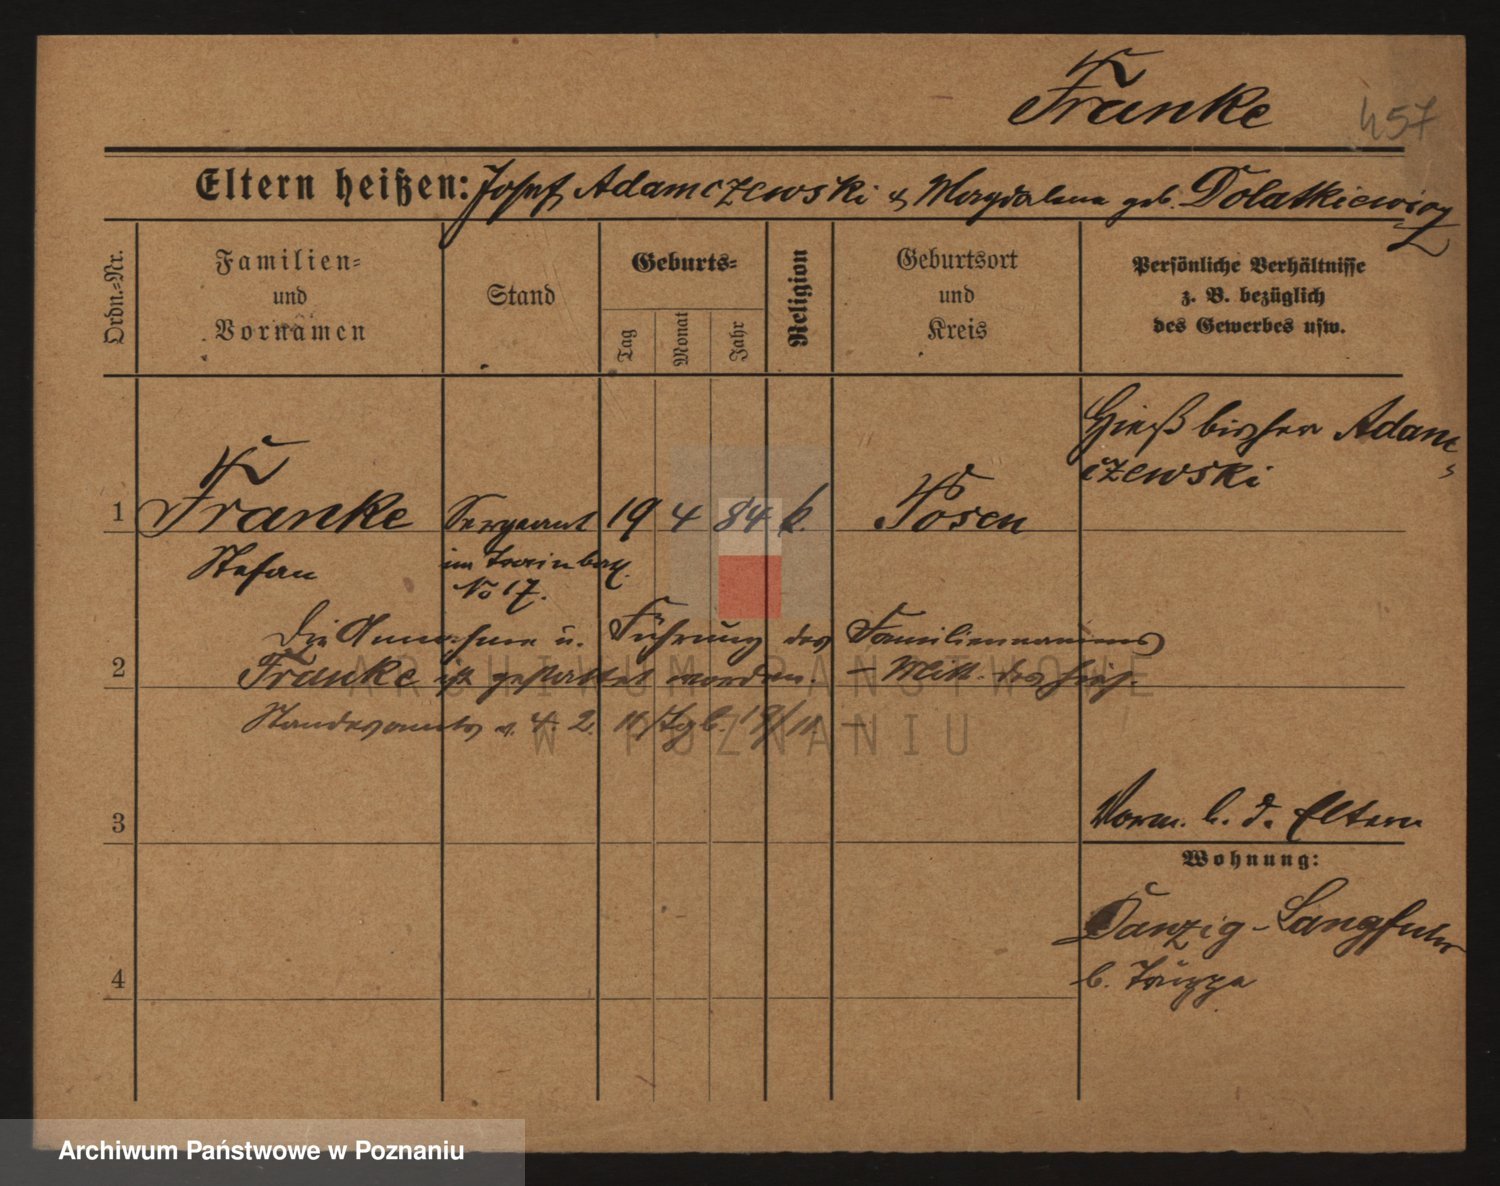 Franke
457
Eltern heißen: Josef Adamczewski & Magdalena geb. Dolatkiewicz
Ordn.-Nr.
Familien-
und
Vornamen
Stand
Geburts-
Tag
Monat
Jahr
Religion
Geburtsort
und
Kreis
Persönliche Verhältnisse
z. B. bezüglich
des Gewerbes usw.
Hieß bisher Adam-
czewski
1 Franke Sergeant 19 4 84 k. Posen
Stefan im Train batl.
No 17.
Die Annahme u. Führung des Familiennamens
2 Franke ist gestattet worden. – Mitt. des hies.
Standesamts v. 4. 2. 11 Tgb. 18/11 –
ARCHIWUM PAŃSTWOWE
W POZNANIU
3
Vorm. b. d. Eltern
Wohnung:
Danzig-Langfuhr
b. Truppe
4
Archiwum Państwowe w Poznaniu